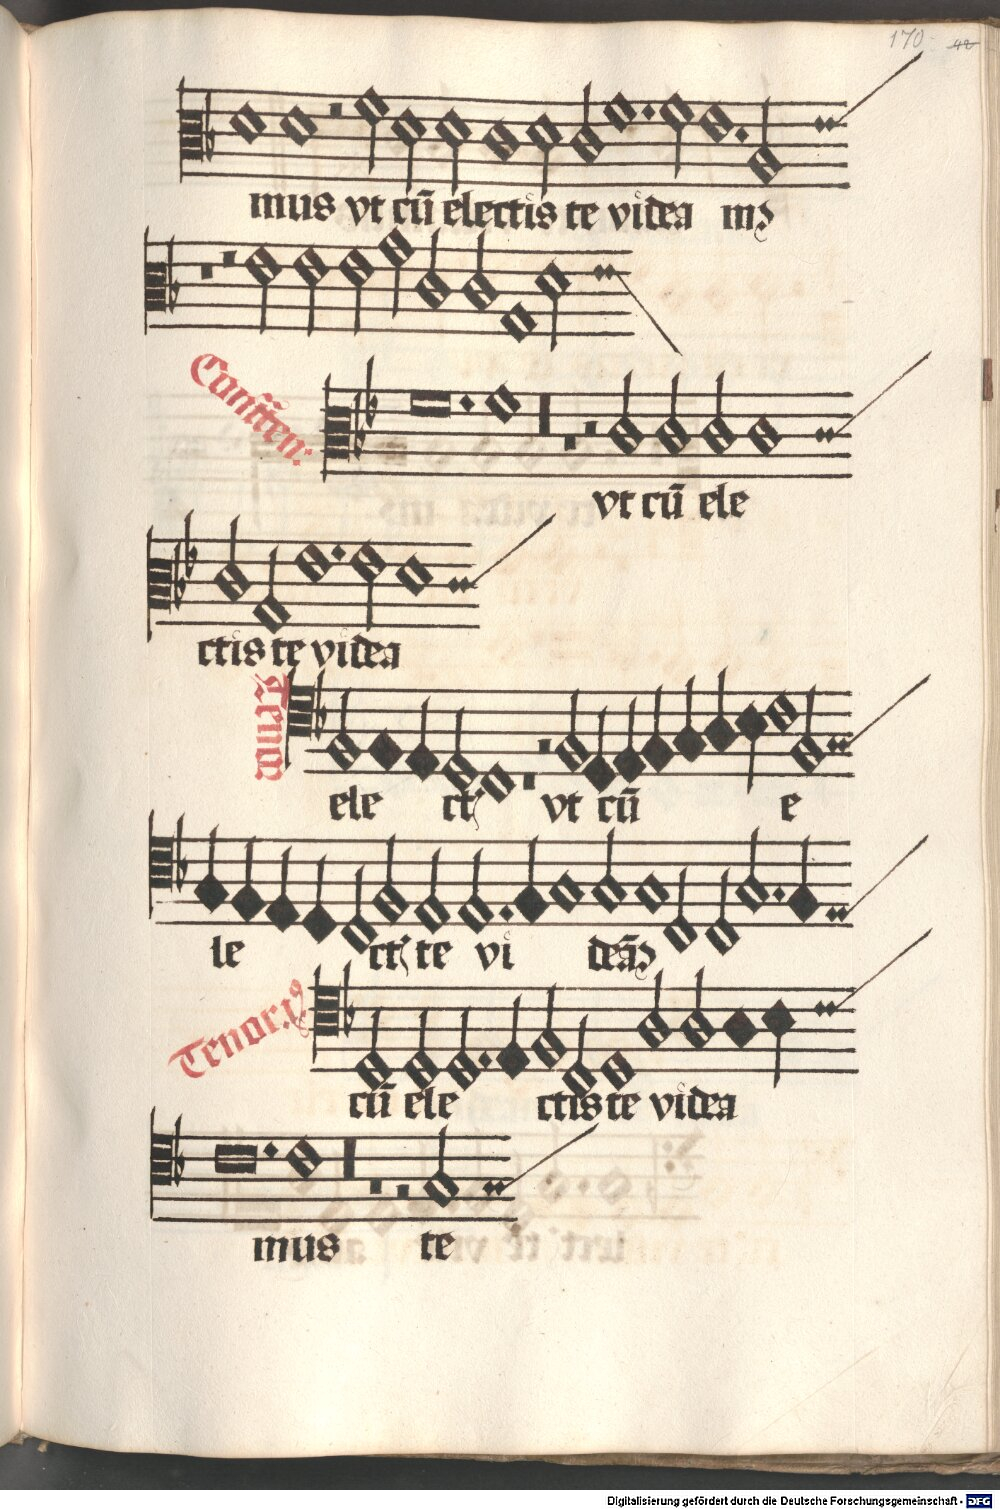 170 42
mus vt cū electis te videa mꝫ
vt cū ele
ctis te videa
Tenor
ele ctꝭ vt cū e
le ctꝭ te vi deāꝫ
Tenor
cū ele ctis te videa
mus te
Digitalisierung gefördert durch die Deutsche Forschungsgemeinschaft - DFG